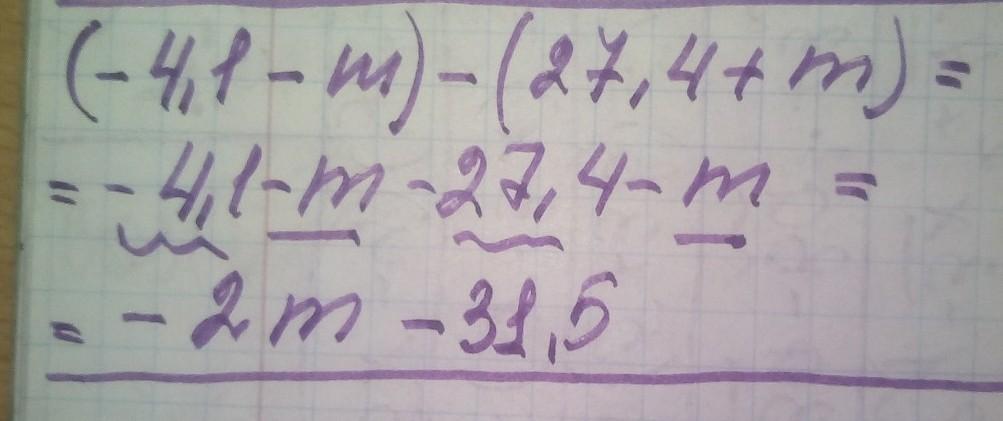 (-4,1-m)-(27,4+m)=
=-4,1-m-27,4-m=
=-2m-31,5